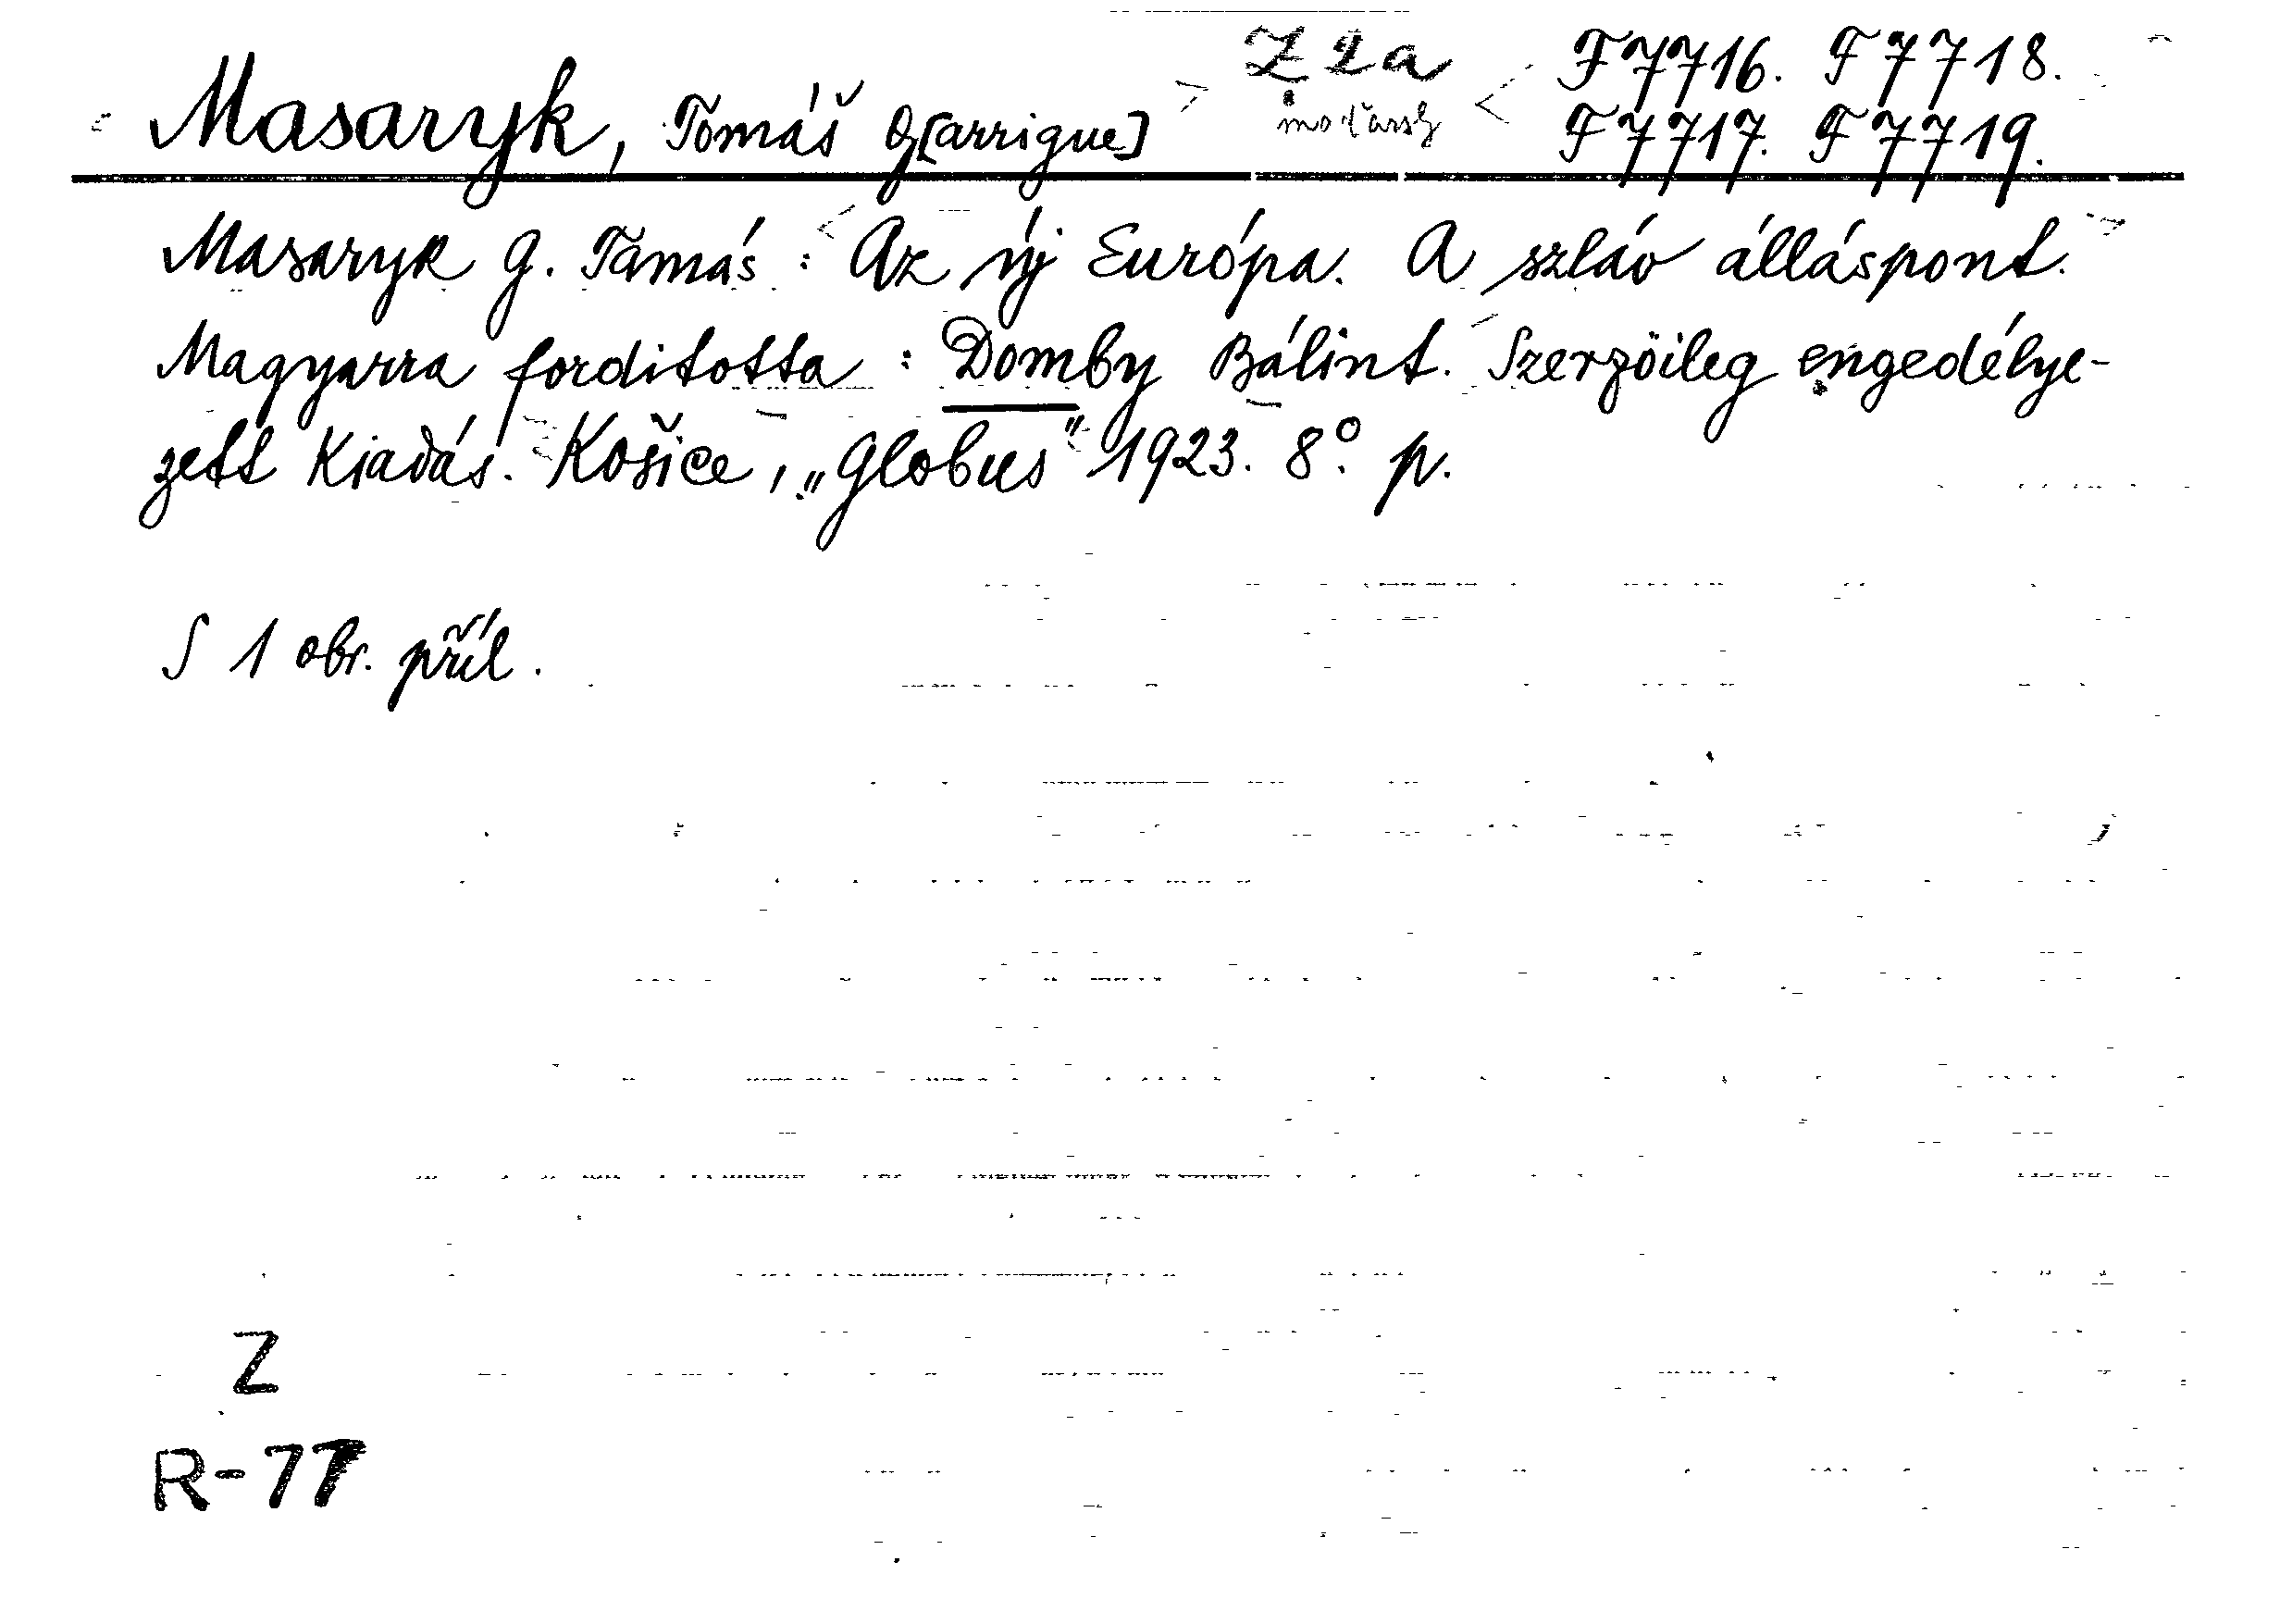 Masaryk, Tomáš G[arrigue] Z 2a F 7716. F 7718.
maďarsky F 7717. F 7719.
Masaryk G. Tamás : Az új Európa. A szláv álláspont.
Magyarra forditotta : Domby Bálint. Szerzöileg engedélye-
zett kiadás. Košice, „Globus" 1923. 8°. p.
S 1 obr. příl.
Z
R-77